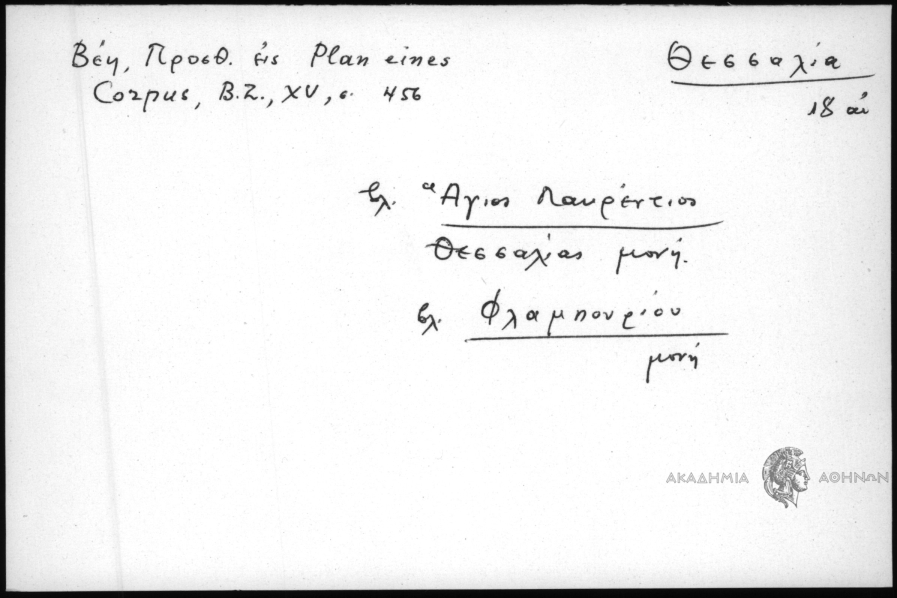 Βέη, Προσθ. εἰς Plan eines
Corpus, B.Z., XV, σ. 456
Θεσσαλία
18 αἰ
βλ. Ἅγιος Λαυρέντιος
Θεσσαλίας μονή.
βλ. Φλαμπουρίου
μονή
ΑΚΑΔΗΜΙΑ ΑΘΗΝΩΝ